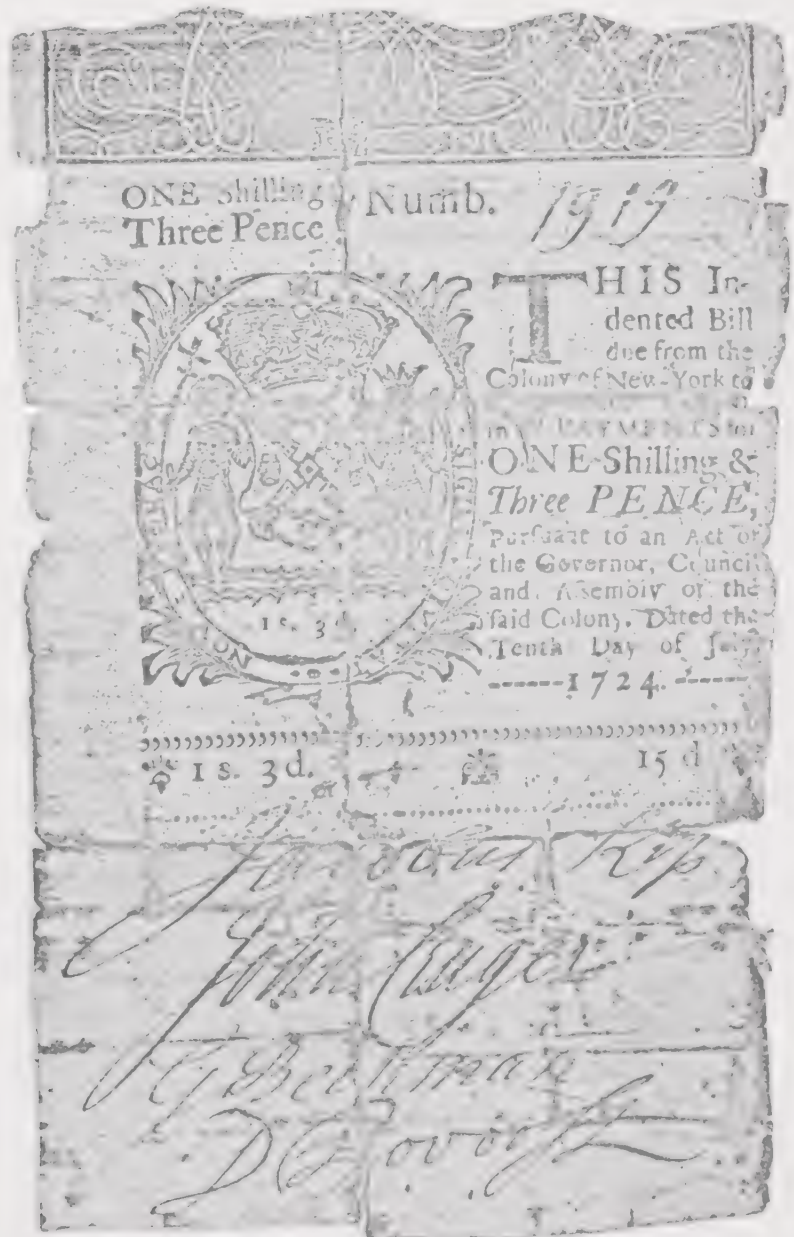 ONE Shilling
Three Pence
Numb. 1919
THIS In-
dented Bill
due from the
Colony of New-York to
in PAYMENTS for
ONE Shilling &
Three PENCE,
Pursuant to an Act of
the Governor, Council
and Assembly of the
said Colony. Dated the
Tenth Day of July,
1724.
1 s. 3 d.
1 s. 3 d.
15 d
Kip
John Cruger
Beekman